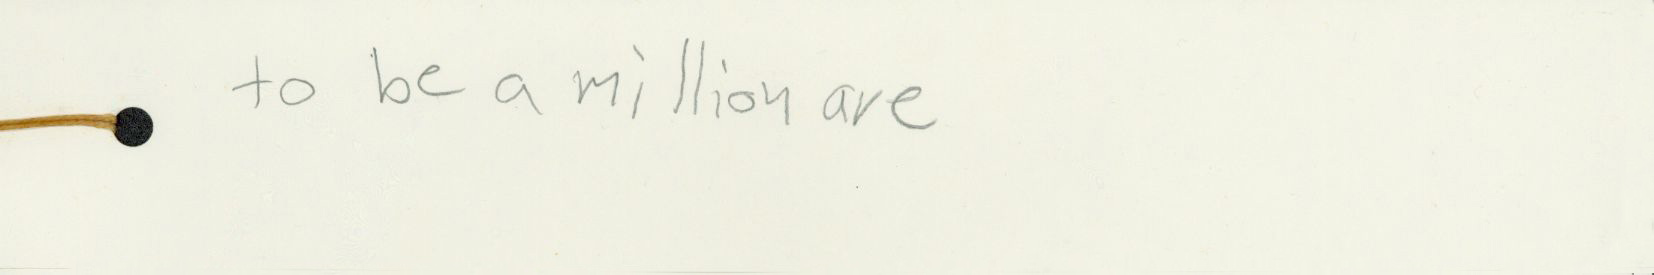 to be a million are